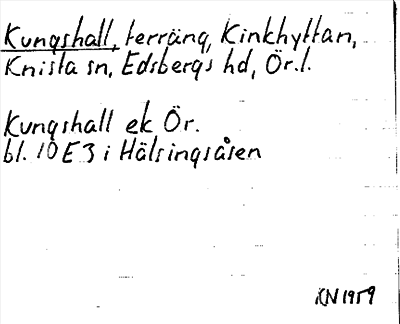 Kungshall, terräng, Kinkhyttan,
Knista sn, Edsbergs hd, Ör.l.
Kungshall ek Ör.
bl. 10E3 i Hälsingsåsen
KN 1959